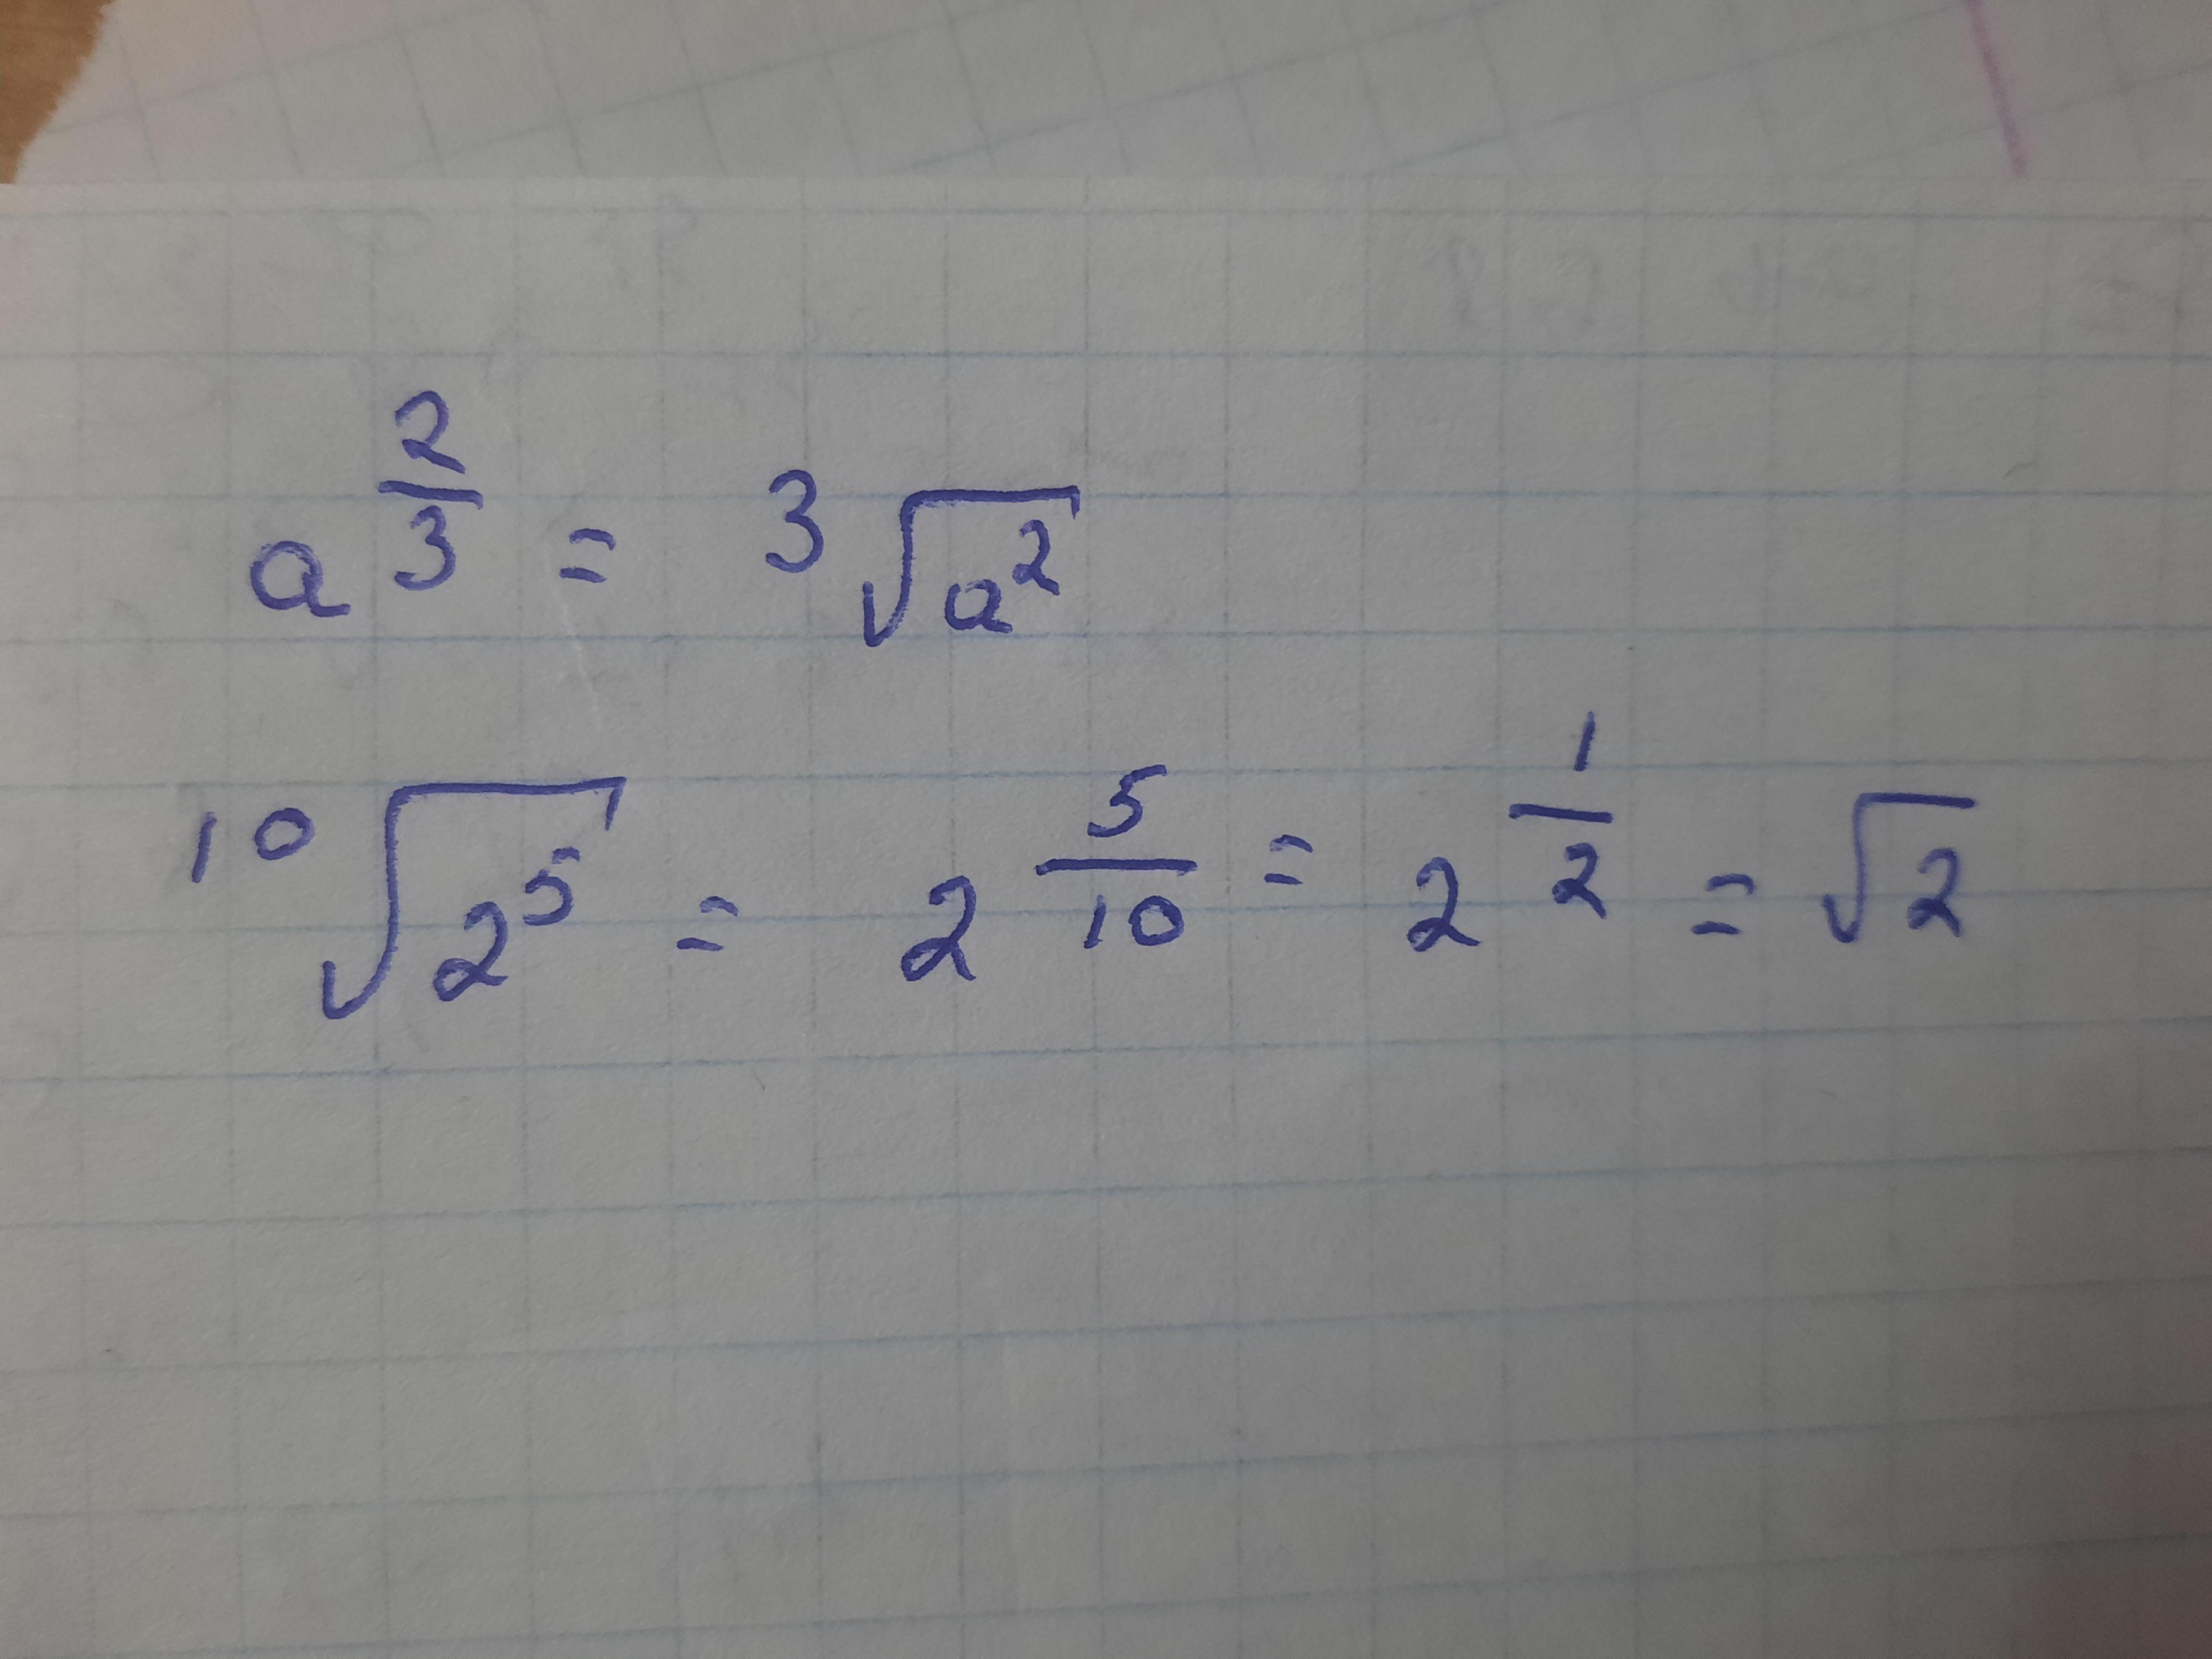 a^{2/3} = ³√(a²)
¹⁰√(2⁵) = 2^{5/10} = 2^{1/2} = √2